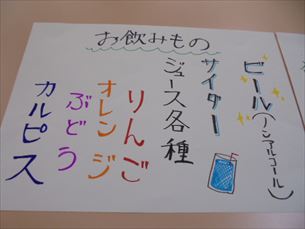 お飲みもの
ビール(ノンアルコール)
サイダー
ジュース各種
りんご
オレンジ
ぶどう
カルピス